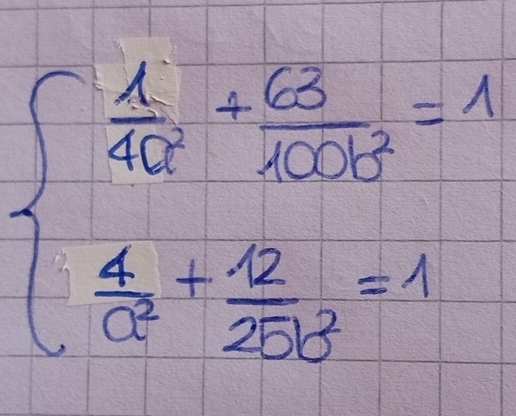 1/4a² + 63/100b² = 1
4/a² + 12/25b² = 1